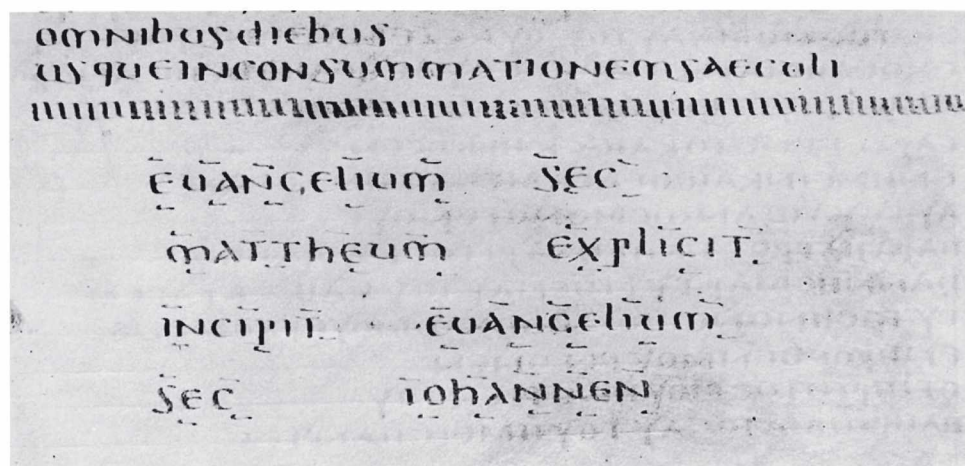 omnibus diebus
usque in consummationem saeculi
euangelium sec
mattheum explicit
incipit · euangelium
sec iohannen